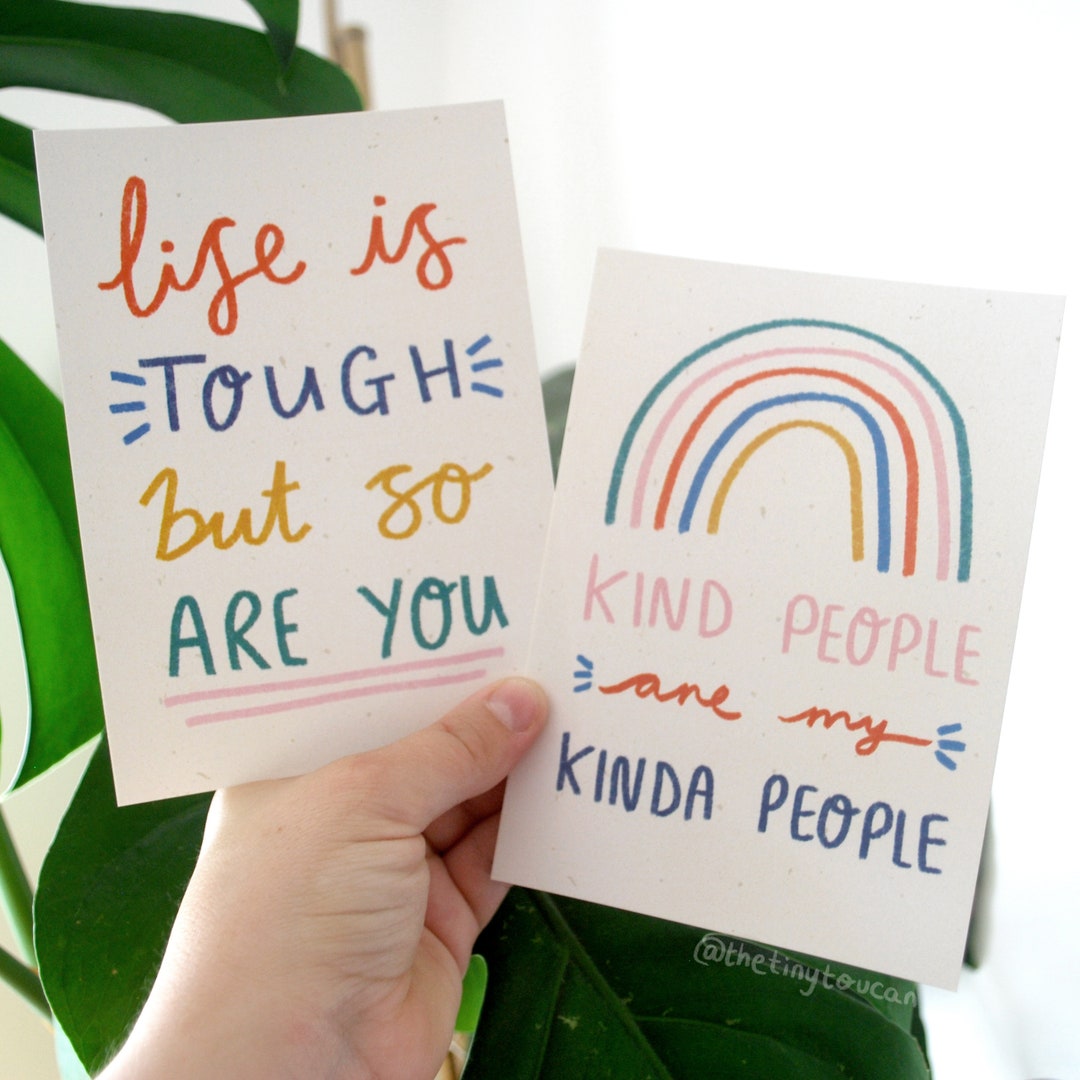 life is
TOUGH
but so
ARE YOU
KIND PEOPLE
are my
KINDA PEOPLE
@thetinytoucan